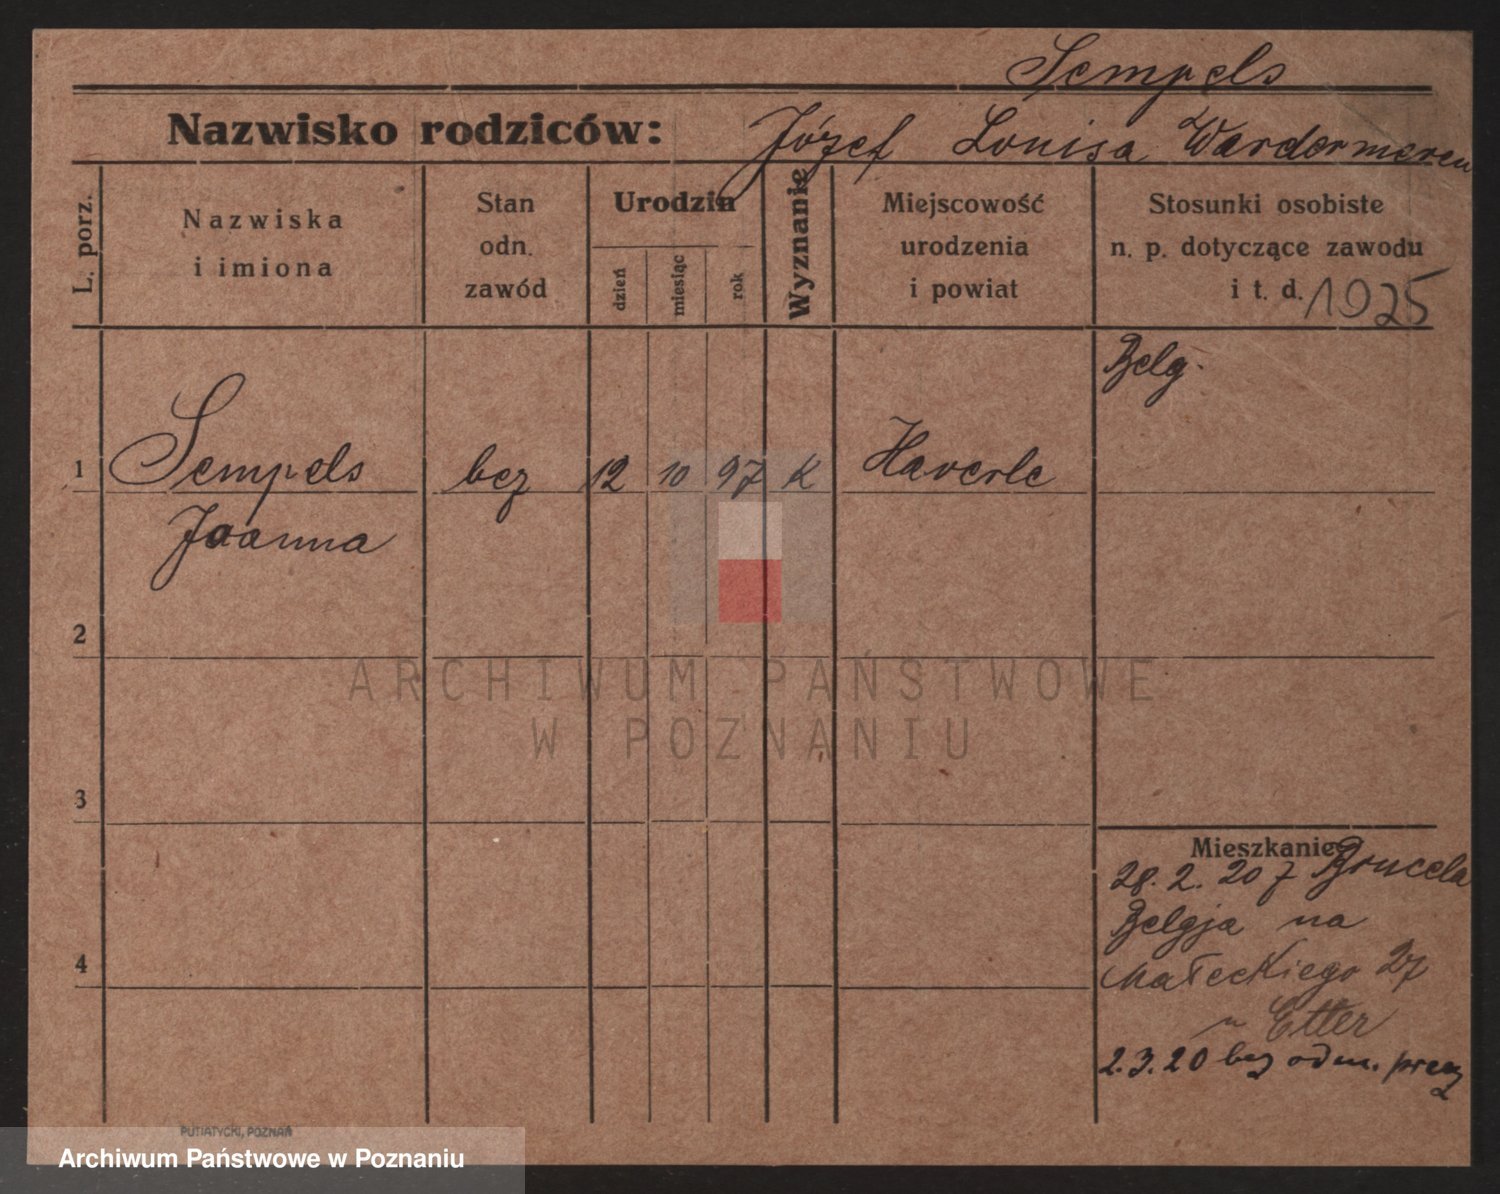 Sempels
Nazwisko rodziców: Józef Louisa Wardormeren
L. porz.
Nazwiska
i imiona
Stan
odn.
zawód
Urodzin
dzień
miesiąc
rok
Wyznanie
Miejscowość
urodzenia
i powiat
Stosunki osobiste
n. p. dotyczące zawodu
i t. d. 1925
Belg.
1 Sempels bez 12 10 97 K Haverle
Joanna
2
3
4
Mieszkanie
28. 2. 20 z Brucela
Belgja na
Małeckiego 27
u Etter
2.3.20 bez odm. precz
ARCHIWUM PAŃSTWOWE
W POZNANIU
PUTIATYCKI, POZNAŃ
Archiwum Państwowe w Poznaniu